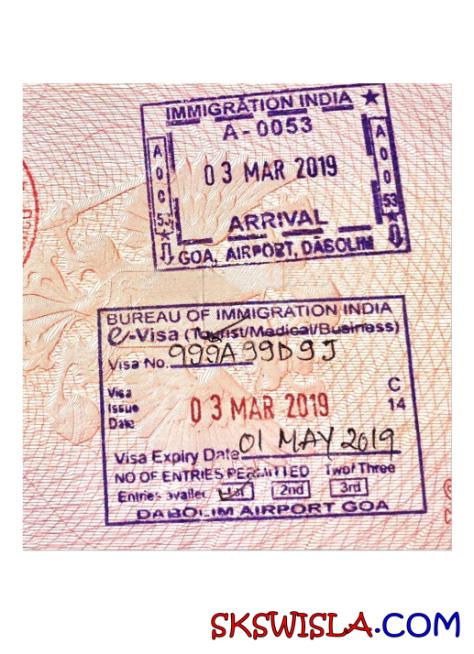 IMMIGRATION INDIA ★
A-0053
03 MAR 2019
ARRIVAL
GOA, AIRPORT, DABOLIM
BUREAU OF IMMIGRATION INDIA
e-Visa (Tourist/Medical/Business)
Visa No. 999A99D9J
Visa Issue Date 03 MAR 2019
C 14
Visa Expiry Date 01 MAY 2019
NO OF ENTRIES PERMITTED Two/Three
Entries availed 1st 2nd 3rd
DABOLIM AIRPORT GOA
SKSWISLA.COM